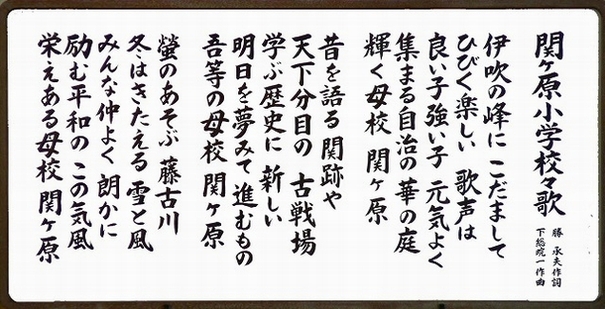 関ヶ原小学校々歌
勝 承夫作詞
下総皖一作曲
伊吹の峰に こだまして
ひびく楽しい 歌声は
良い子強い子 元気よく
集まる自治の 華の庭
輝く母校 関ヶ原
昔を語る 関跡や
天下分目の 古戦場
学ぶ歴史に 新しい
明日を夢みて 進むもの
吾等の母校 関ヶ原
螢のあそぶ 藤古川
冬はきたえる 雪と風
みんな仲よく 朗かに
励む平和の この気風
栄えある母校 関ヶ原